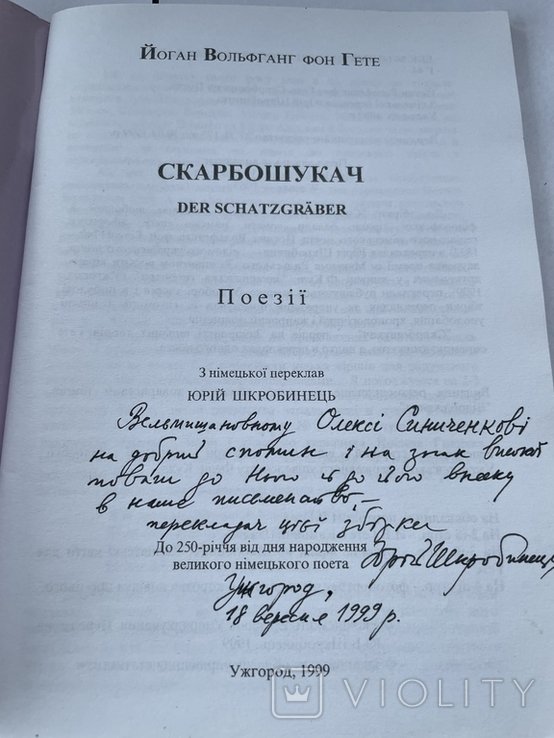 Йоган Вольфганг фон Гете
СКАРБОШУКАЧ
DER SCHATZGRÄBER
Поезії
З німецької переклав
ЮРІЙ ШКРОБИНЕЦЬ
Вельмишановному Олексі Синиченкові
на добрий спомин і на знак високої
поваги до Нього й до його внеску
в наше письменство, –
перекладач цієї збірки
До 250-річчя від дня народження
великого німецького поета
Юрій Шкробинець
Ужгород,
18 вересня 1999 р.
Ужгород, 1999
VIOLITY